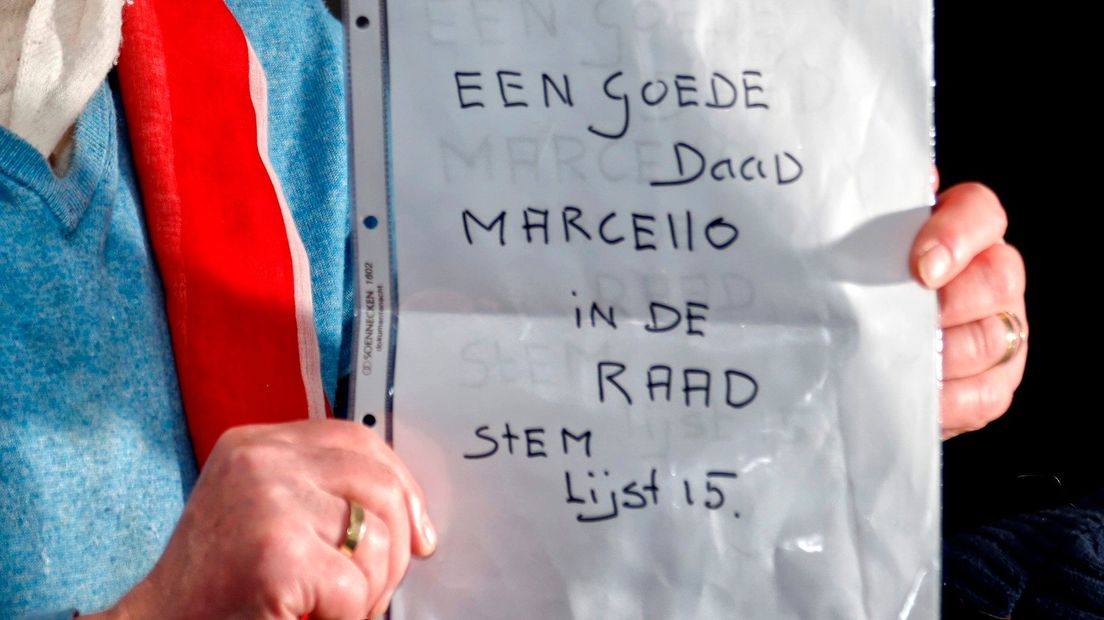 EEN GOEDE
DaaD
MARCEllO
iN DE
RAAD
StEM
Lijst 15.
SOENNECKEN 1602
dokumentenecht